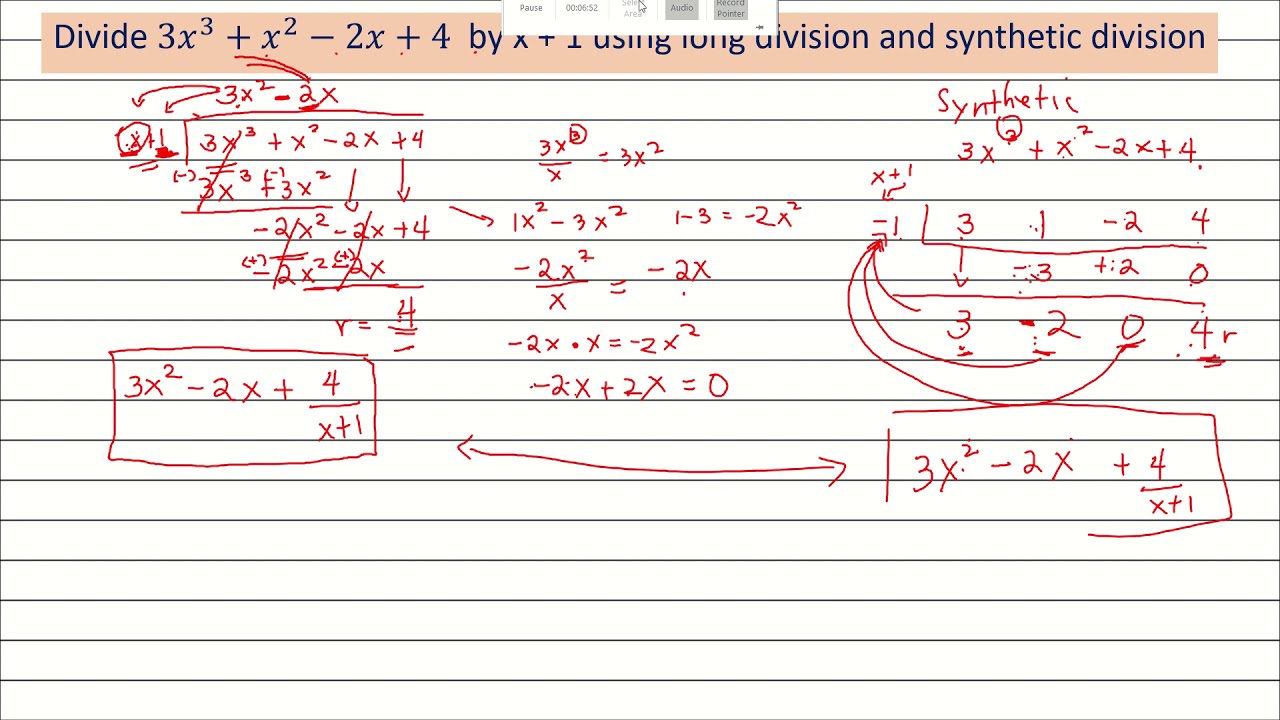 Pause 00:06:52 Select Area Audio Record Pointer
Divide 3x³ + x² − 2x + 4 by x + 1 using long division and synthetic division
3x² - 2x
x+1 3x³ + x² - 2x + 4
(-) 3x³ (-) +3x²
-2x² - 2x + 4
(+) - 2x² (+) - 2x
r = 4
3x² - 2x + 4/(x+1)
3x³/x = 3x²
1x² - 3x² 1-3 = -2x²
-2x²/x = -2x
-2x • x = -2x²
-2x + 2x = 0
Synthetic
3x³ + x² - 2x + 4
x+1
-1 3 1 -2 4
-3 +2 0
3 -2 0 4 r
3x² - 2x + 4/(x+1)